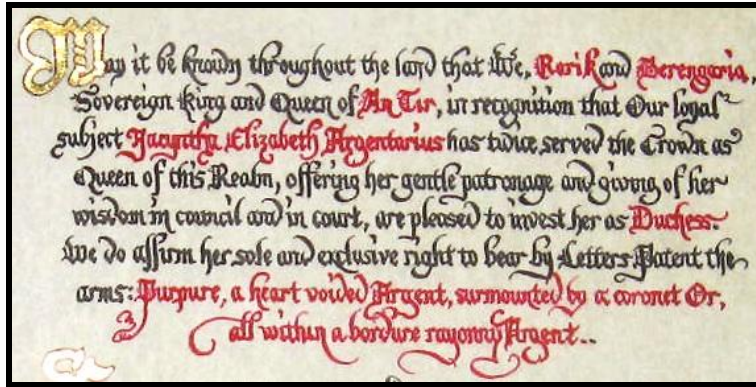 May it be known throughout the land that We, Rorik and Berengaria,
Sovereign King and Queen of An Tir, in recognition that Our loyal
subject Jacyntha Elizabeth Argentarius has twice served the Crown as
Queen of this Realm, offering her gentle patronage and giving of her
wisdom in council and in court, are pleased to invest her as Duchess.
We do affirm her sole and exclusive right to bear by Letters Patent the
arms: Purpure, a heart voided Argent, surmounted by a coronet Or,
all within a bordure rayonny Argent..